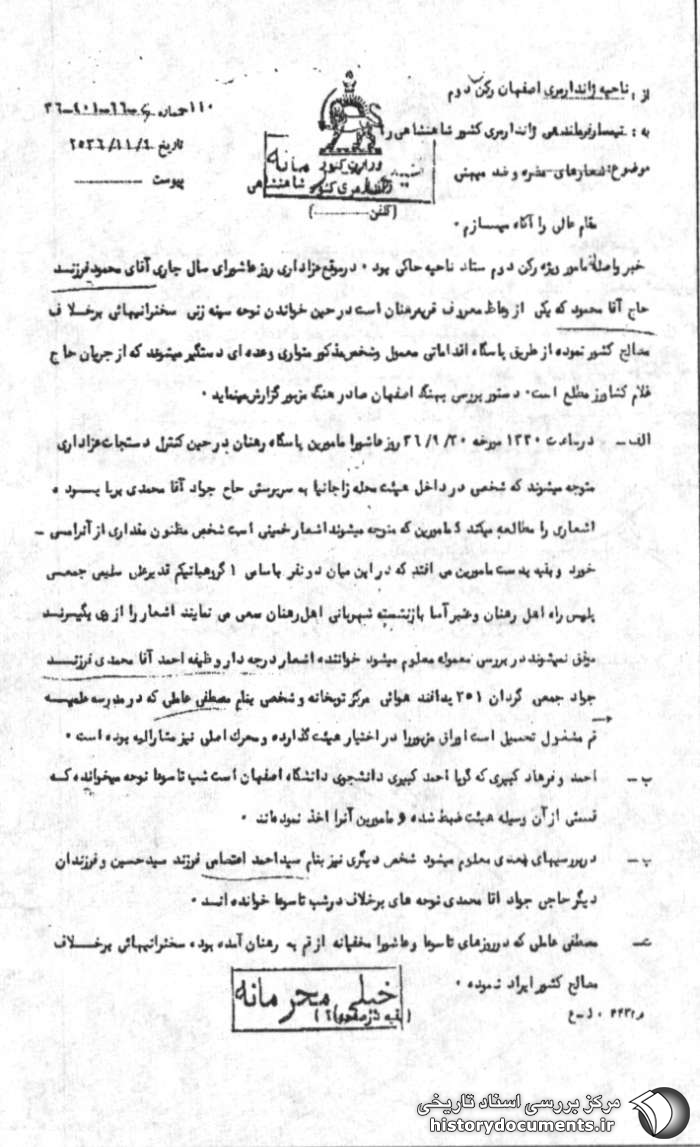 از : ناحیه ژاندارمری اصفهان رکن دوم
به : تیمسار فرماندهی ژاندارمری کشور شاهنشاهی ر۲
موضوع: شعارهای مضره و ضد میهنی
شماره
تاریخ ۲۵۳۶/۱۱/۴
پیوست
وزارت کشور
ژاندارمری کشور شاهنشاهی
مقام عالی را آگاه میسازم .
خبر واصله مامور ویژه رکن دوم ستاد ناحیه حاکی بود . در موقع عزاداری روز عاشورای سال جاری آقای محمود فرزند
حاج آقا محمود که یکی از وعاظ معروف قریه رهنان است در حین خواندن نوحه سینه زنی سخنرانیهائی برخلاف
مصالح کشور نموده از طریق پاسگاه اقداماتی معمول وشخص مذکور متواری وعده ای دستگیر میشوند که از جریان حاج
غلام کشاورز مطلع است . دستور بررسی بهنگ اصفهان صادر هنگ مزبور گزارش مینماید .
الف - در ساعت ۱۳۳۰ مورخه ۳۶/۹/۳۰ روز عاشورا مامورین پاسگاه رهنان در حین کنترل دستجات عزاداری
متوجه میشوند که شخصی در داخل هیئت محله زاجانیا به سرپرستی حاج جواد آقا محمدی برپا بسود .
اشعاری را مطالعه میکند مامورین که متوجه میشوند اشعار خمینی است شخص مظنون مقداری از آنرا می -
خورد و بقیه بدست مامورین می افتد که در این میان دو نفر باسامی ۱ گروهبانیکم قدیرعلی سلیمی جمعی
پلیس راه اهل رهنان و بازنشسته شهربانی اهل رهنان سعی می نمایند اشعار را از وی بگیرند
موفق نمیشوند در بررسی معموله معلوم میشود خواننده اشعار درجه دار وظیفه احمد آقا محمدی فرزند
جواد جمعی گردان ۲۵۱ پدافند هوائی مرکز توپخانه و شخصی بنام مصطفی عاملی که در مدرسه علمیه
قم مشغول تحصیل است اوراق مزبور را در اختیار هیئت گذارده و محرک اصلی نیز مشارالیه بوده است .
ب - احمد و فرهاد کبیری که گویا احمد کبیری دانشجوی دانشگاه اصفهان است شب تاسوعا نوحه میخوانده که
قسمتی از آن وسیله هیئت ضبط شده و مامورین آنرا اخذ نموده اند .
پ - در بررسیهای بعدی معلوم میشود شخص دیگری نیز بنام سید احمد اعتصامی فرزند سید حسین و فرزندان
دیگر حاجی جواد آقا محمدی نوحه های برخلاف در شب تاسوعا خوانده اند .
مصطفی عاملی که در روزهای تاسوعا و عاشورا مخفیانه از قم به رهنان آمده بوده سخنرانیهائی برخلاف
مصالح کشور ایراد نموده .
خیلی محرمانه
(بقیه در صفحه ۲)
مرکز بررسی اسناد تاریخی
historydocuments.ir